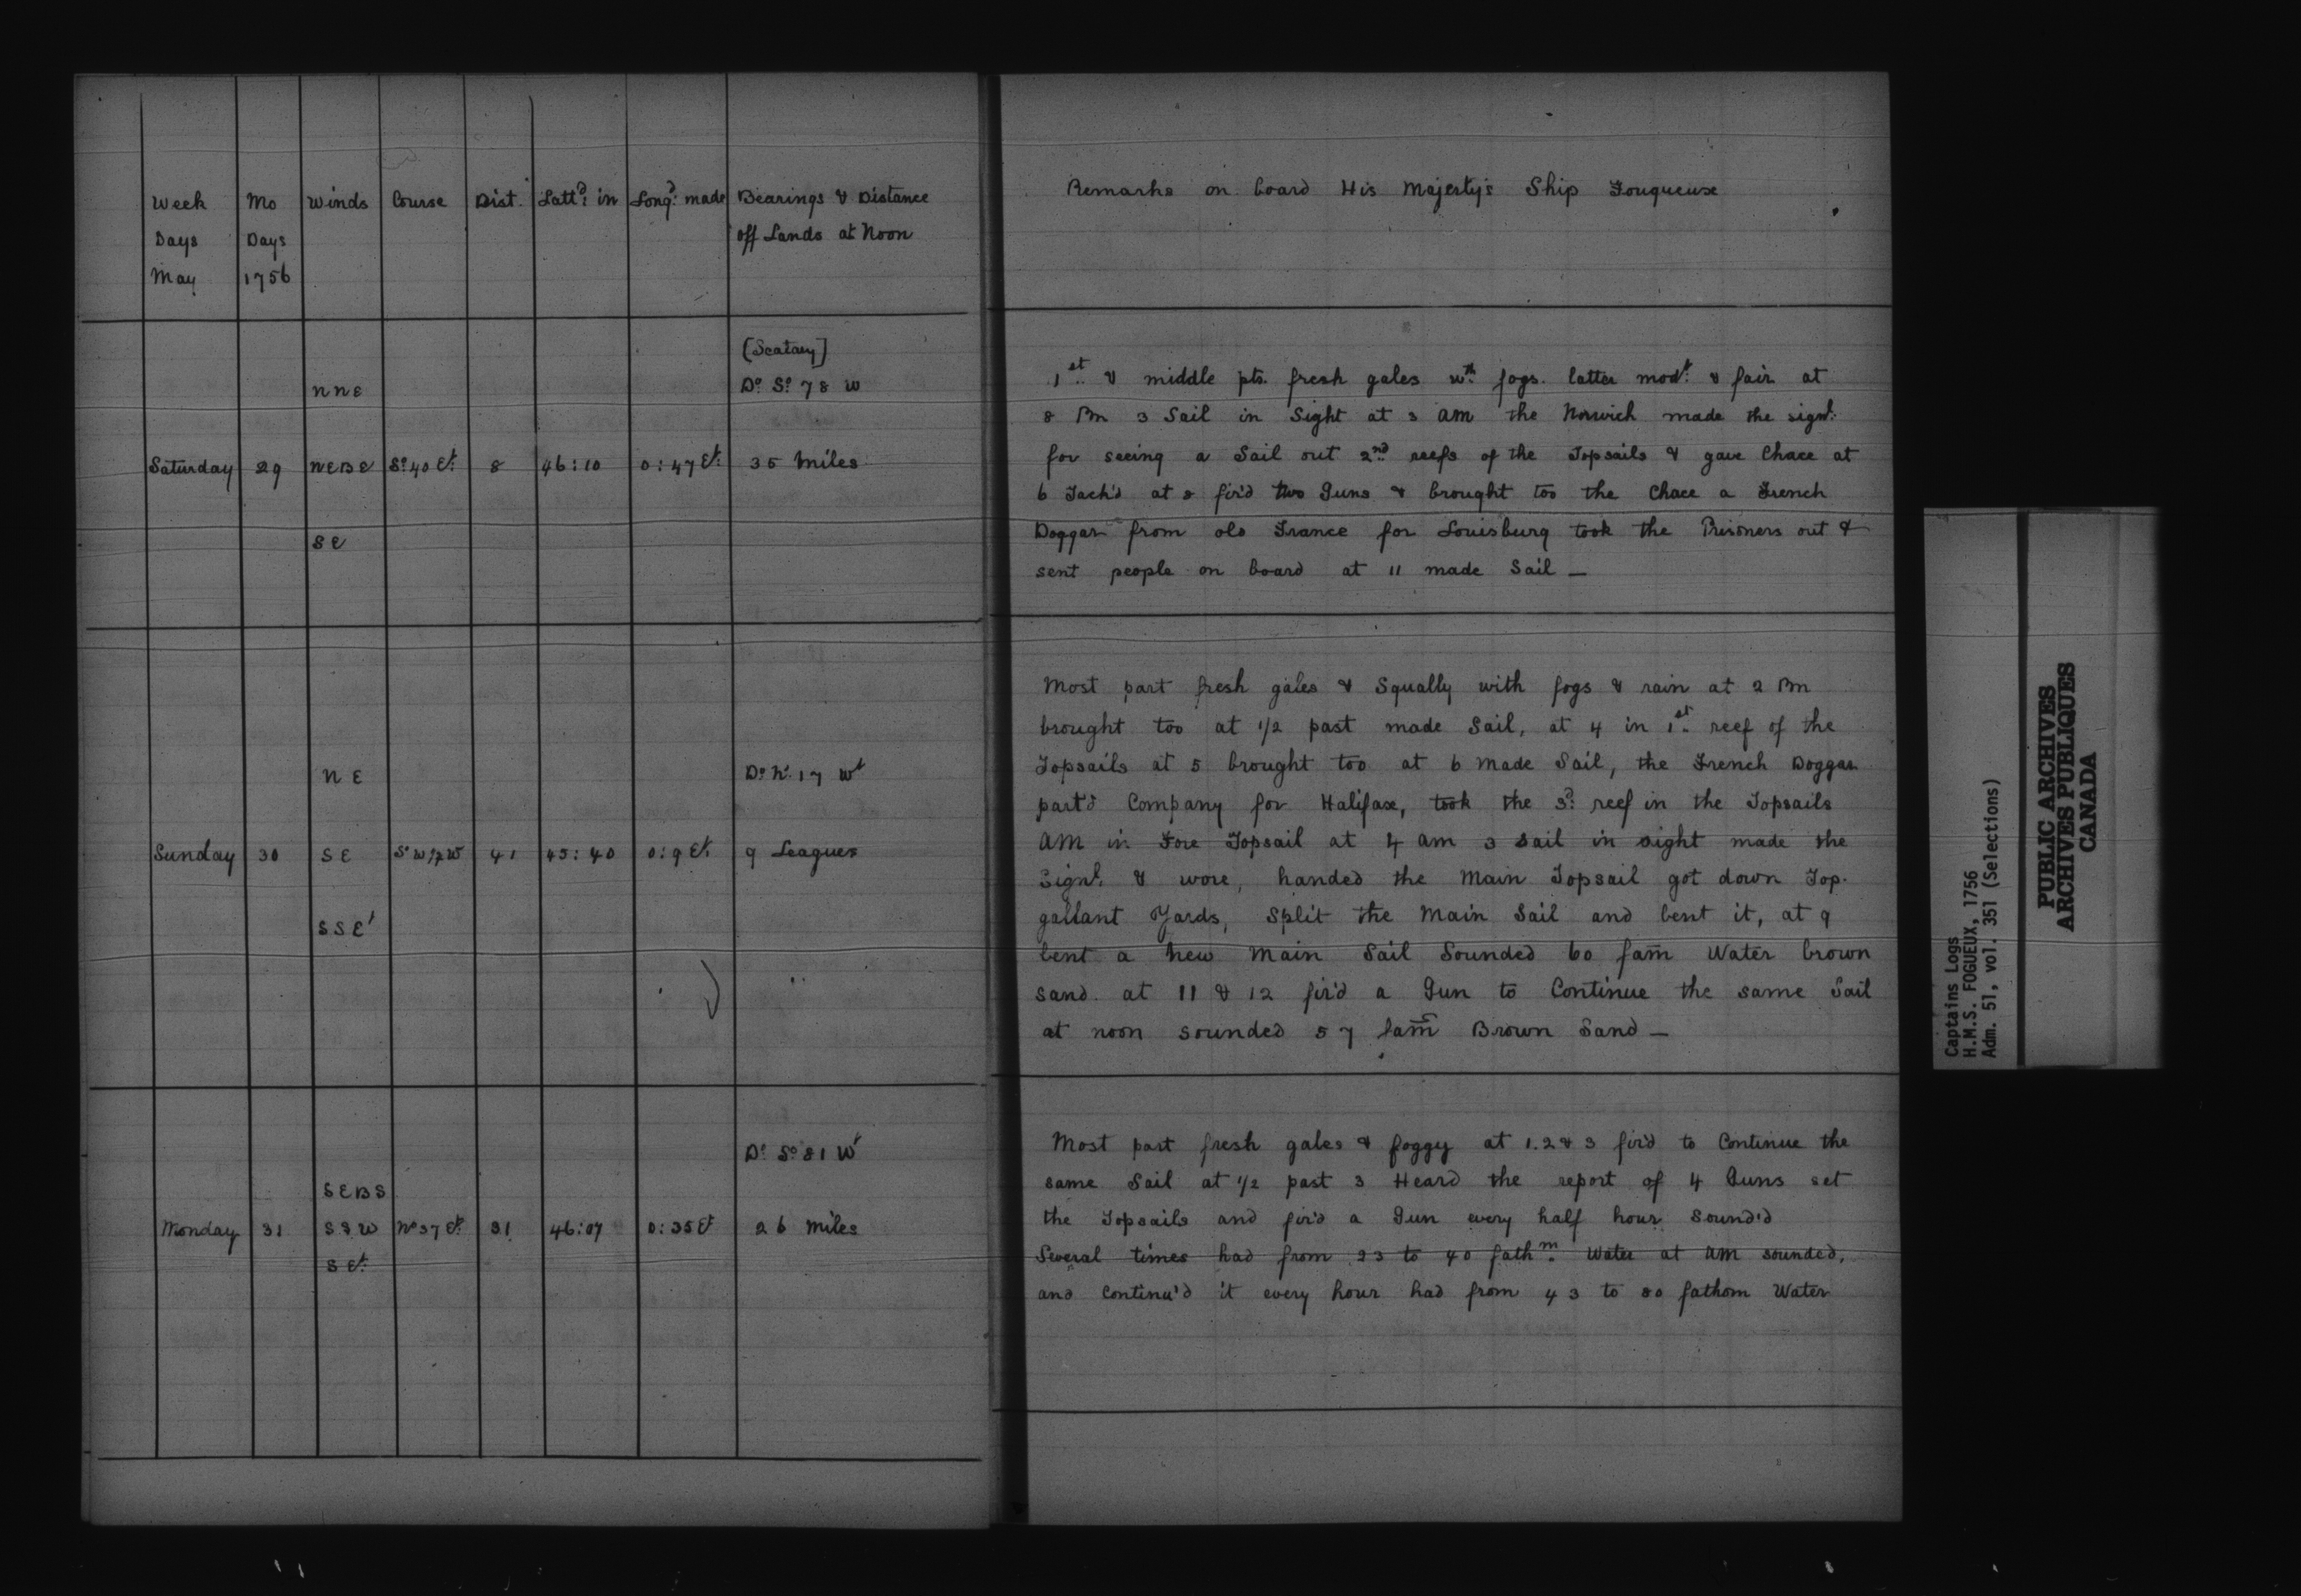 Week Mo Winds Course Dist. Lattd: in Longd: made Bearings & Distance
Days Days off Lands at Noon
May 1756
[Scatary]
NNE Do So 78 W
Saturday 29 NEBE So 40 Et: 8 46:10 0:47 Et: 35 Miles
SE
NE Do No 17 Wt
Sunday 30 SE So W 1/2 W 41 45:40 0:9 Et: 9 Leagues
SSEt
Do So 81 Wt
SEBS
Monday 31 SSW No 37 Et: 31 46:07 0:35 Et 26 Miles
SEt:
Remarks on board His Majesty's Ship Fouqueux
1st & middle pts. fresh gales wth fogs. latter modt: & fair at
8 Pm 3 Sail in Sight at 3 am the Norwich made the signl:
for seeing a Sail out 2nd reefs of the Topsails & gave Chace at
6 Tack'd at 8 fir'd two Guns & brought too the Chace a French
Doggar from old France for Louisburg took the Prisoners out &
sent people on board at 11 made Sail —
Most part fresh gales & Squally with fogs & rain at 2 Pm
brought too at 1/2 past made Sail, at 4 in 1st reef of the
Topsails at 5 brought too at 6 made Sail, the French Doggar
part'd Company for Halifax, took the 3d: reef in the Topsails
AM in Fore Topsail at 4 am 3 Sail in sight made the
Signl. & wore, handed the Main Topsail got down Top.
gallant Yards, Split the Main Sail and bent it, at 9
bent a new Main Sail Sounded 60 fam Water brown
sand. at 11 & 12 fir'd a Gun to Continue the same Sail
at noon sounded 57 fam Brown Sand —
Most part fresh gales & foggy at 1.2 & 3 fir'd to Continue the
same Sail at 1/2 past 3 Heard the report of 4 Guns set
the Topsails and fir'd a Gun every half hour Sound'd
Several times had from 23 to 40 fathm. Water at AM sounded,
and Continu'd it every hour had from 43 to 80 fathom Water
Captains Logs
H.M.S. FOGUEUX, 1756
Adm. 51, vol. 351 (Selections)
PUBLIC ARCHIVES
ARCHIVES PUBLIQUES
CANADA